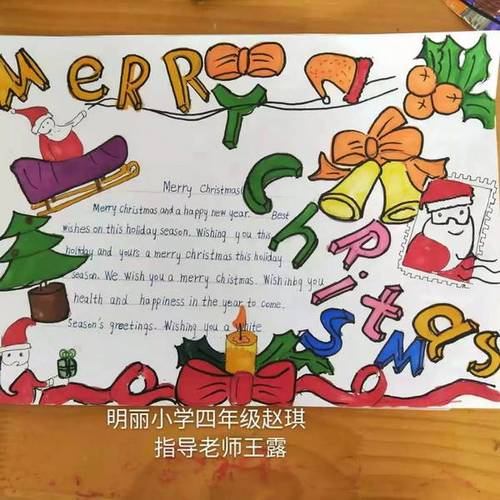 MERRY
ChRitmas
Merry Christmas
Merry christmas and a happy new year. Best
wishes on this holiday season. Wishing you this
holiday and yours a merry christmas this holiday
season. We wish you a merry Chistmas. Wishinbg you
health and happiness in the year to come.
Season's greetings. Wishing you a white
明丽小学四年级赵琪
指导老师王露